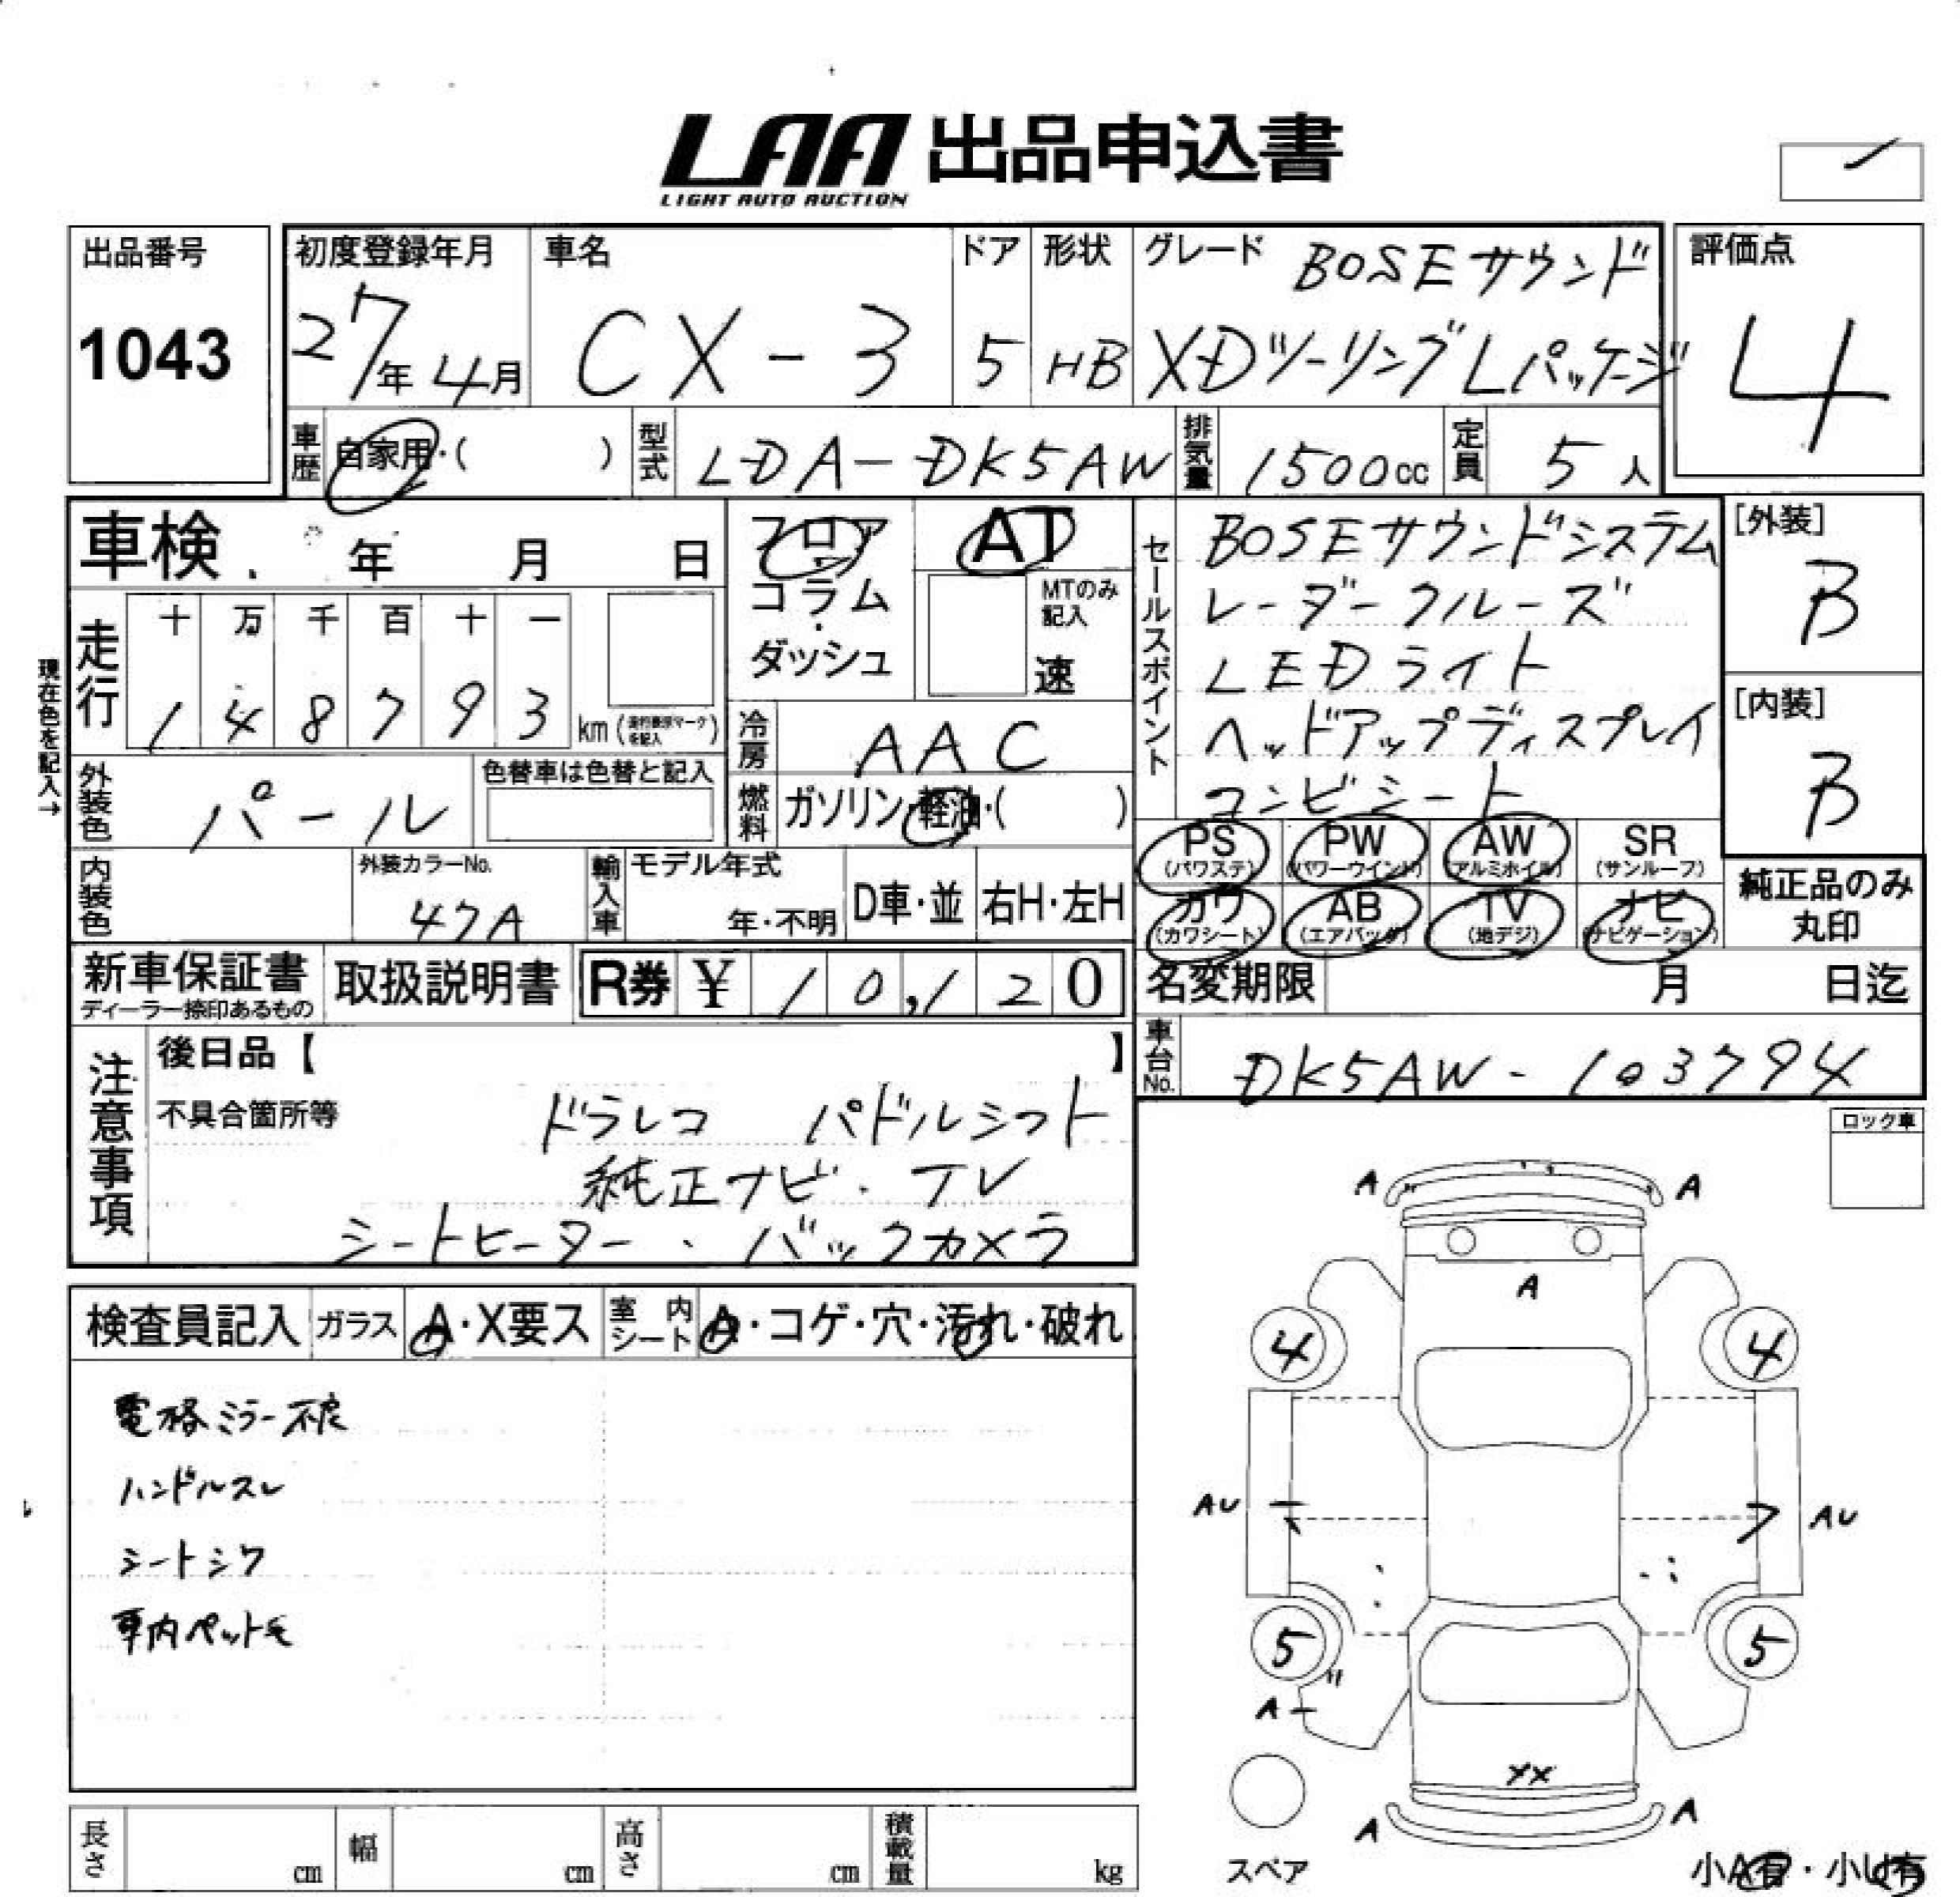 LAA 出品申込書
LIGHT AUTO AUCTION
出品番号
1043
初度登録年月
27年4月
車名
CX-3
ドア
5
形状
HB
グレード BOSEサウンド
XDツーリングLパッケージ
評価点
4
車歴 自家用・( )
型式 LDA-DK5AW
排気量 1500cc
定員 5人
車検 年 月 日
フロア
コラム
・
ダッシュ
AT
MTのみ
記入
速
セールスポイント
BOSEサウンドシステム
レーダークルーズ
LEDライト
ヘッドアップディスプレイ
コンビシート
[外装]
B
[内装]
B
現在色を記入→
走行
十 万 千 百 十 一
1 4 8 7 9 3 km
冷房 AAC
燃料 ガソリン・軽油・( )
外装色 パール
色替車は色替と記入
内装色
外装カラーNo.
47A
輸入車 モデル年式
年・不明
D車・並 右H・左H
PS (パワステ)
PW (パワーウインド)
AW (アルミホイル)
SR (サンルーフ)
カワ (カワシート)
AB (エアバッグ)
TV (地デジ)
ナビ (ナビゲーション)
純正品のみ
丸印
新車保証書
ディーラー捺印あるもの
取扱説明書
R券 ¥ 10,120
名変期限 月 日迄
車台No. DK5AW-103794
注意事項
後日品【 】
不具合箇所等
ドラレコ パドルシフト
純正ナビ・TV
シートヒーター・バックカメラ
ロック車
検査員記入 ガラス A・X要ス 室内シート A・コゲ・穴・汚れ・破れ
電格ミラー不良
ハンドルスレ
シートシワ
車内ペット毛
A A
A
4 4
AU AU
5 5
A
XX
A A
スペア
小A有・小U有
長さ cm 幅 cm 高さ cm 積載量 kg